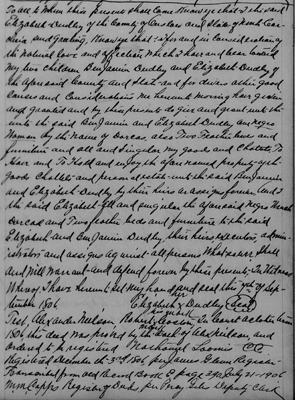 To all to whom these presents shall Come Know ye that I the said
Elizabeth Dudley of the County of Onslow and State of North Car-
olina and greeting Know ye that I for and in Consideration of
the Natural love and affection which I have and bear toward
my two Children Benjamin Dudley and Elizabeth Dudley of
the aforesaid County and State and for divers other good
Causes and Considerations me hereunto moving have given
and granted and by these presents do give and grant unto the
unto the said Benjamin and Elizabeth Dudley one negro
Woman by the name of Dorcas, also Two Feather beds and
furniture and all and Singular my goods and Chattels To
Have and To Hold and enjoy the afore named property
goods Chattles and personal estate unto the said Benjamin
and Elizabeth Dudley by their heirs or assigns forever And I
the said Elizabeth all and singular the aforesaid negro Wench
Dorcas and Two feather beds and furniture to the said
Elizabeth and Benjamin Dudley, their heirs Executors admin-
istrators and assigns against all persons Whatsoever, Shall
and Will Warrant and defend forever by these presents In Witness
Whereof I have hereunto Set my hand and seal this 7th of Sep-
tember 1806 Elizabeth her mark Dudley (Seal)
Test, Alexander Neilson, Robert his mark
1806 this deed was proved by the Oath of Neilson, and
ordered to be registered Nathaniel Loomis C.C.
Registered December th 3rd 1806 per James Glenn Register
Transcribed from old Record Book E page July 21-1906
Register of Deeds per Deputy